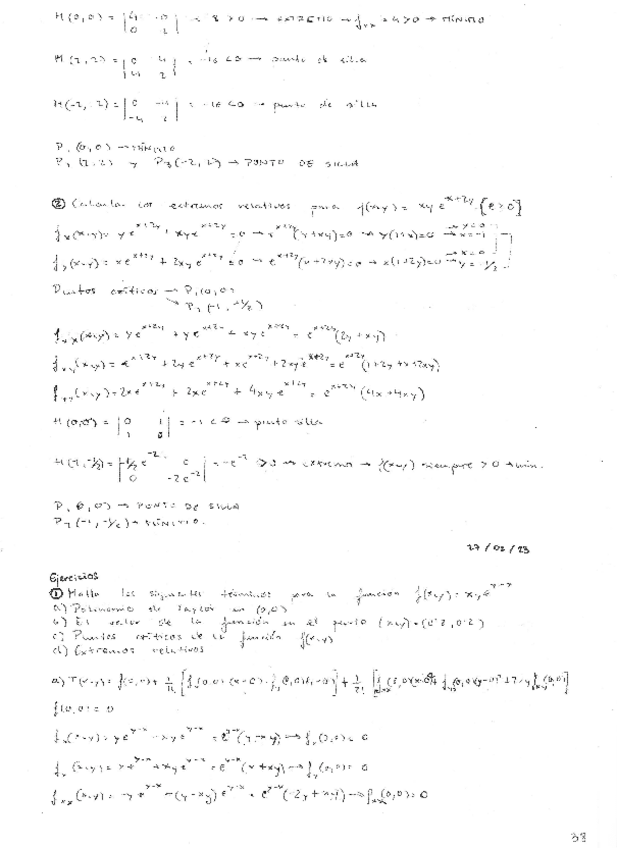 H(0,0) = |4 0; 0 2| = 8 > 0 → EXTREMO → fxx = 4 > 0 → MÍNIMO
H(2,2) = |0 4; 4 2| = -16 < 0 → punto de silla
H(-2,2) = |0 -4; -4 2| = -16 < 0 → punto de silla
P1(0,0) → MÍNIMO
P2(2,2) y P3(-2,2) → PUNTO DE SILLA
② Calcular los extremos relativos para f(x,y) = xy e^(x+2y) [e > 0]
fx(x,y) = y e^(x+2y) + xy e^(x+2y) = 0 → e^(x+2y)(y+xy) = 0 → y(1+x) = 0 → y = 0 → x = -1
fy(x,y) = x e^(x+2y) + 2xy e^(x+2y) = 0 → e^(x+2y)(x+2xy) = 0 → x(1+2y) = 0 → x = 0 → y = -1/2
Puntos críticos → P1(0,0)
→ P2(-1,-1/2)
fxx(x,y) = y e^(x+2y) + y e^(x+2y) + xy e^(x+2y) = e^(x+2y)(2y+xy)
fxy(x,y) = e^(x+2y) + 2y e^(x+2y) + x e^(x+2y) + 2xy e^(x+2y) = e^(x+2y)(1+2y+x+2xy)
fyy(x,y) = 2x e^(x+2y) + 2x e^(x+2y) + 4xy e^(x+2y) = e^(x+2y)(4x+4xy)
H(0,0) = |0 1; 1 0| = -1 < 0 → punto silla
> 0 → extremo → f(x,y) siempre > 0 → min.
P1(0,0) → PUNTO DE SILLA
P2(-1,-1/2) → MÍNIMO.
27/02/23
Ejercicios
① Halla los siguientes términos para la función f(x,y) = xy e^(y-x)
a) Polinomio de Taylor en (0,0)
b) El valor de la función en el punto (x,y) = (0'2, 0'2)
c) Puntos críticos de la función f(x,y)
d) Extremos relativos
a) T(x,y) =
f(0,0) = 0
fx(x,y) = y e^(y-x) - xy e^(y-x) = e^(y-x)(y-xy) → fx(0,0) = 0
fy(x,y) = x e^(y-x) + xy e^(y-x) = e^(y-x)(x+xy) → fy(0,0) = 0
fxx(x,y) = -y e^(y-x) - (y-xy) e^(y-x) = e^(y-x)(-2y+xy) → fxx(0,0) = 0